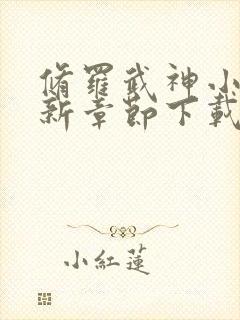 脩羅武神小
新章節下載
小紅蓮